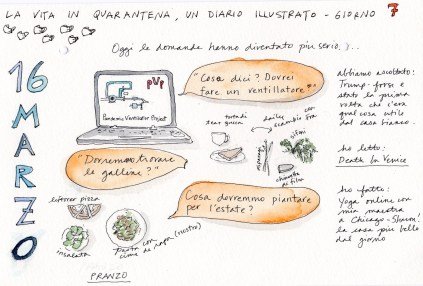 LA VITA IN QUARANTENA, UN DIARIO ILLUSTRATO - GIORNO 7
Oggi le domande hanno diventato piu serio...
16 MARZO
PVP
Pandemic Ventilator Project
"Cosa dici? Dovrei
fare un ventillatore?"
torta di
pear queen
daily
scambio con
Fra
asparagi
sifoni
chiavette
di
"Dovremmo trovare
le galline?"
Cosa dovremmo piantare
per l'estate?
leftover pizza
insalata
pasta con
cime di rapa (nostro)
PRANZO
abbiamo ascoltato:
Trump - forse e
stato la prima
volta che c'era
qualcosa utile
dal casa bianco.
ho letto:
Death in Venice
ho fatto:
Yoga online con
mia maestra
a Chicago - Shawn!
la cosa piu bella
dal giorno